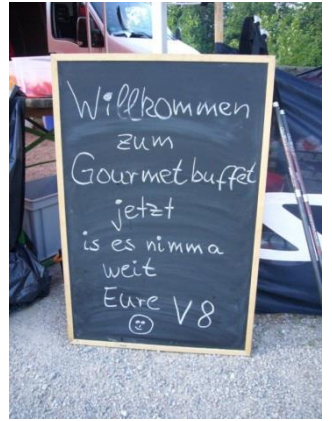 Willkommen
zum
Gourmetbuffet
jetzt
is es nimma
weit
Eure V8